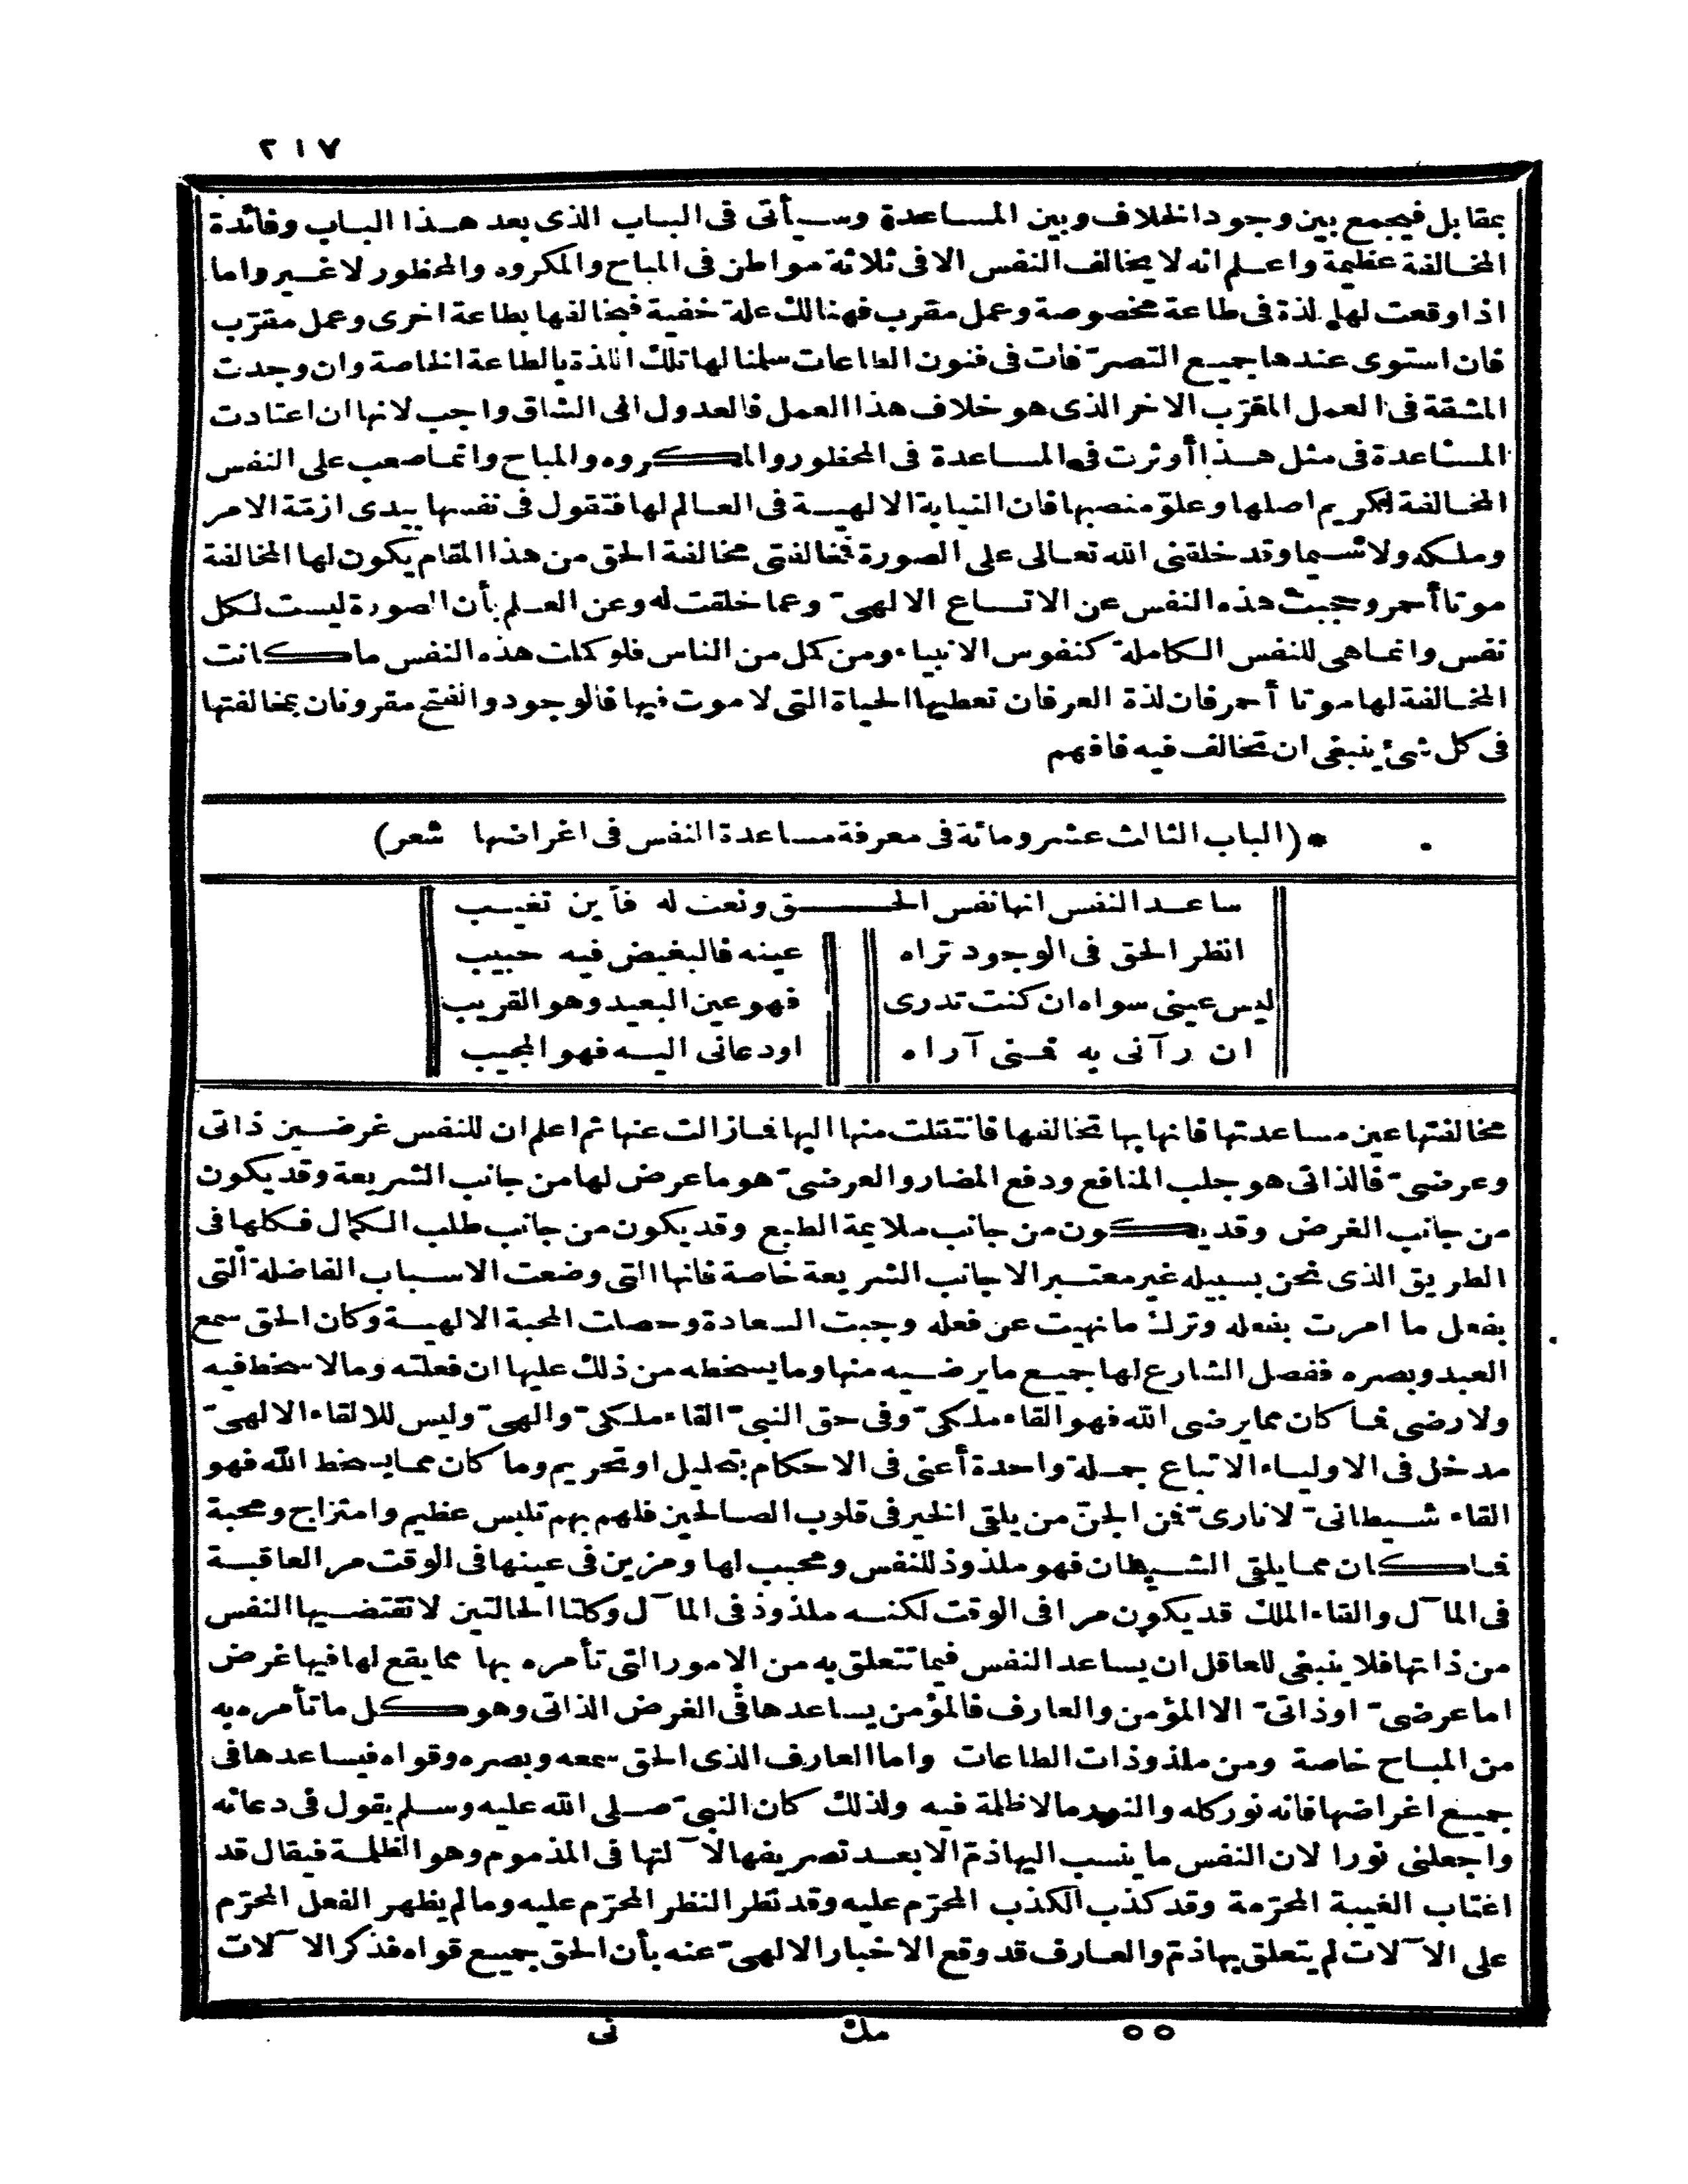 ٢١٧
بمقابل فيجمع بين وجود الخلاف وبين المساعدة وسيأتى فى الباب الذى بعد هذا الباب وفائدة
المخالفة عظيمة واعلم انه لا يخالف النفس الا فى ثلاثة مواطن فى المباح والمكروه والمحظور لا غير واما
اذا وقعت لها لذة فى طاعة مخصوصة وعمل مقرب فهنالك علة خفية فيخالفها بطاعة اخرى وعمل مقرّب
فان استوى عندها جميع التصرّفات فى فنون الطاعات سلمنا لها تلك اللذة بالطاعة الخاصة وان وجدت
المشقة فى العمل المقرّب الاخر الذى هو خلاف هذا العمل فالعدول الى الشاق واجب لانها ان اعتادت
المساعدة فى مثل هذا أوثرت فى المساعدة فى المحظور والمكروه والمباح وانما صعب على النفس
المخالفة لكريم اصلها وعلوّ منصبها فان النيابة الالهية فى العالم لها فتقول فى نفسها بيدى ازمّة الامر
وملكه ولا سيما وقد خلقنى الله تعالى على الصورة فمخالفتى مخالفة الحق من هذا المقام يكون لها المخالفة
موتا أحمر وحجبت هذه النفس عن الاتساع الالهىّ وعما خلقت له وعن العلم بأن الصورة ليست لكل
نفس وانما هى للنفس الكاملة كنفوس الانبياء ومن كمل من الناس فلو كملت هذه النفس ما كانت
المخالفة لها موتا أحمر فان لذة العرفان تعطيها الحياة التى لا موت فيها فالوجود والفتح مقرونان بمخالفتها
فى كل شئ ينبغى ان تخالف فيه فافهم
* (الباب الثالث عشر ومائة فى معرفة مساعدة النفس فى اغراضها شعر)
ساعد النفس انها نفس الحـق ونعت له فأين تغيب
انظر الحق فى الوجود تراه عينه فالبغيض فيه حبيب
ليس عينى سواه ان كنت تدرى فهو عين البعيد وهو القريب
ان رآنى به فمنى آراه او دعانى اليه فهو المجيب
مخالفتها عين مساعدتها فانها بها تخالفها فانتقلت منها اليها فما زالت عنها ثم اعلم ان للنفس غرضين ذاتى
وعرضىّ فالذاتى هو جلب المنافع ودفع المضار والعرضىّ هو ما عرض لها من جانب الشريعة وقد يكون
من جانب الغرض وقد يكون من جانب ملايمة الطبع وقد يكون من جانب طلب الكمال فكلها فى
الطريق الذى نحن بسبيله غير معتبر الا جانب الشريعة خاصة فانها التى وضعت الاسباب الفاضلة التى
بفعل ما امرت بفعله وترك ما نهيت عن فعله وجبت السعادة وحصلت المحبة الالهية وكان الحق سمع
العبد وبصره ففصل الشارع لها جميع ما يرضيه منها وما يسخطه من ذلك عليها ان فعلته وما لا سخط فيه
ولا رضى فما كان مما يرضى الله فهو القاء ملكىّ وفى حق النبىّ القاء ملكىّ والهىّ وليس للالقاء الالهىّ
مدخل فى الاولياء الاتباع جملة واحدة أعنى فى الاحكام بتحليل او تحريم وما كان مما يسخط الله فهو
القاء شيطانىّ لا نارىّ فمن الجنّ من يلقى الخير فى قلوب الصالحين فلهم بهم تلبس عظيم وامتزاج ومحبة
فما كان مما يلقى الشيطان فهو ملذوذ للنفس ومحبب لها ومزين فى عينها فى الوقت مر العاقبة
فى المآل والقاء الملك قد يكون مرا فى الوقت لكنه ملذوذ فى المآل وكلتا الحالتين لا تقتضيها النفس
من ذاتها فلا ينبغى للعاقل ان يساعد النفس فيما تتعلق به من الامور التى تأمره بها مما يقع لها فيها غرض
اما عرضىّ او ذاتىّ الا المؤمن والعارف فالمؤمن يساعدها فى الغرض الذاتى وهو كل ما تأمره به
من المباح خاصة ومن ملذوذات الطاعات واما العارف الذى الحق سمعه وبصره وقواه فيساعدها فى
جميع اغراضها فانه نور كله والنور ما لا ظلمة فيه ولذلك كان النبىّ صلى الله عليه وسلم يقول فى دعائه
واجعلنى نورا لان النفس ما ينسب اليها ذمّ الا بعد تصريفها لآلتها فى المذموم وهو الظلمة فيقال قد
اغتاب الغيبة المحرّمة وقد كذب الكذب المحرّم عليه وقد نظر النظر المحرّم عليه وما لم يظهر الفعل المحرّم
على الآلات لم يتعلق بها ذمّ والعارف قد وقع الاخبار الالهىّ عنه بأن الحق جميع قواه فذكر الآلات
٥٥ مك نى